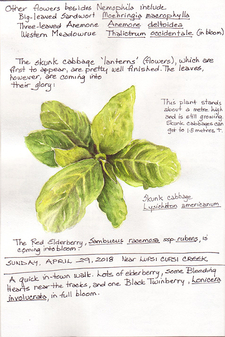 Other flowers besides Nemophila include:
Big-leaved Sandwort Moehringia macrophylla
Three-leaved Anemone Anemone deltoidea
Western Meadowrue Thalictrum occidentale (in bloom)
The skunk cabbage 'lanterns' (flowers), which are
first to appear, are pretty well finished. The leaves,
however, are coming into
their glory:
This plant stands
about a metre high
and is still growing.
Skunk cabbages can
get to 1.5 metres +.
Skunk cabbage
Lysichiton americanum.
The Red Elderberry, Sambucus racemosa ssp. rubens, is
coming into bloom.
SUNDAY, APRIL 29, 2018 Near CURSI CREEK
A quick in-town walk. Lots of elderberry, some Bleeding
Hearts near the tracks, and one Black Twinberry, Lonicera
involucrata, in full bloom.